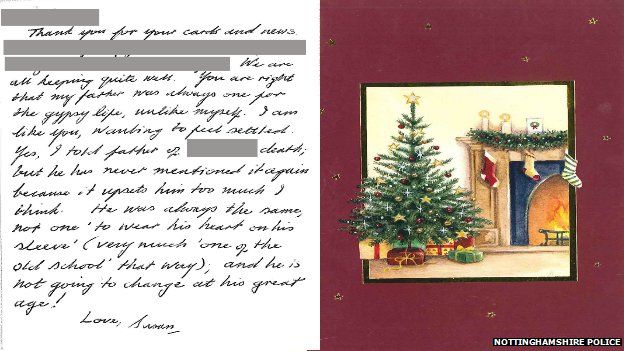 Thank you for your cards and news.
We are
all keeping quite well. You are right
that my father was always one for
the gypsy life, unlike myself. I am
like you, wanting to feel settled.
Yes, I told father of death;
but he has never mentioned it again
because it upsets him too much I
think. He was always the same,
not one 'to wear his heart on his
sleeve' (very much 'one of the
old school' that way); and he is
not going to change at his great
age!
Love, Susan
NOTTINGHAMSHIRE POLICE